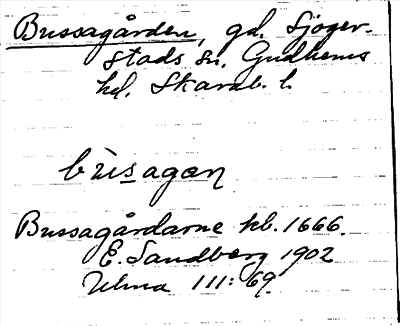 Bussagården, gd. Sjöger-
stads sn. Gudhems
hd. Skarab. l.
bùsagan
Bussagårdarne kb. 1666.
E. Sandberg 1902
Ulma 111: 69.